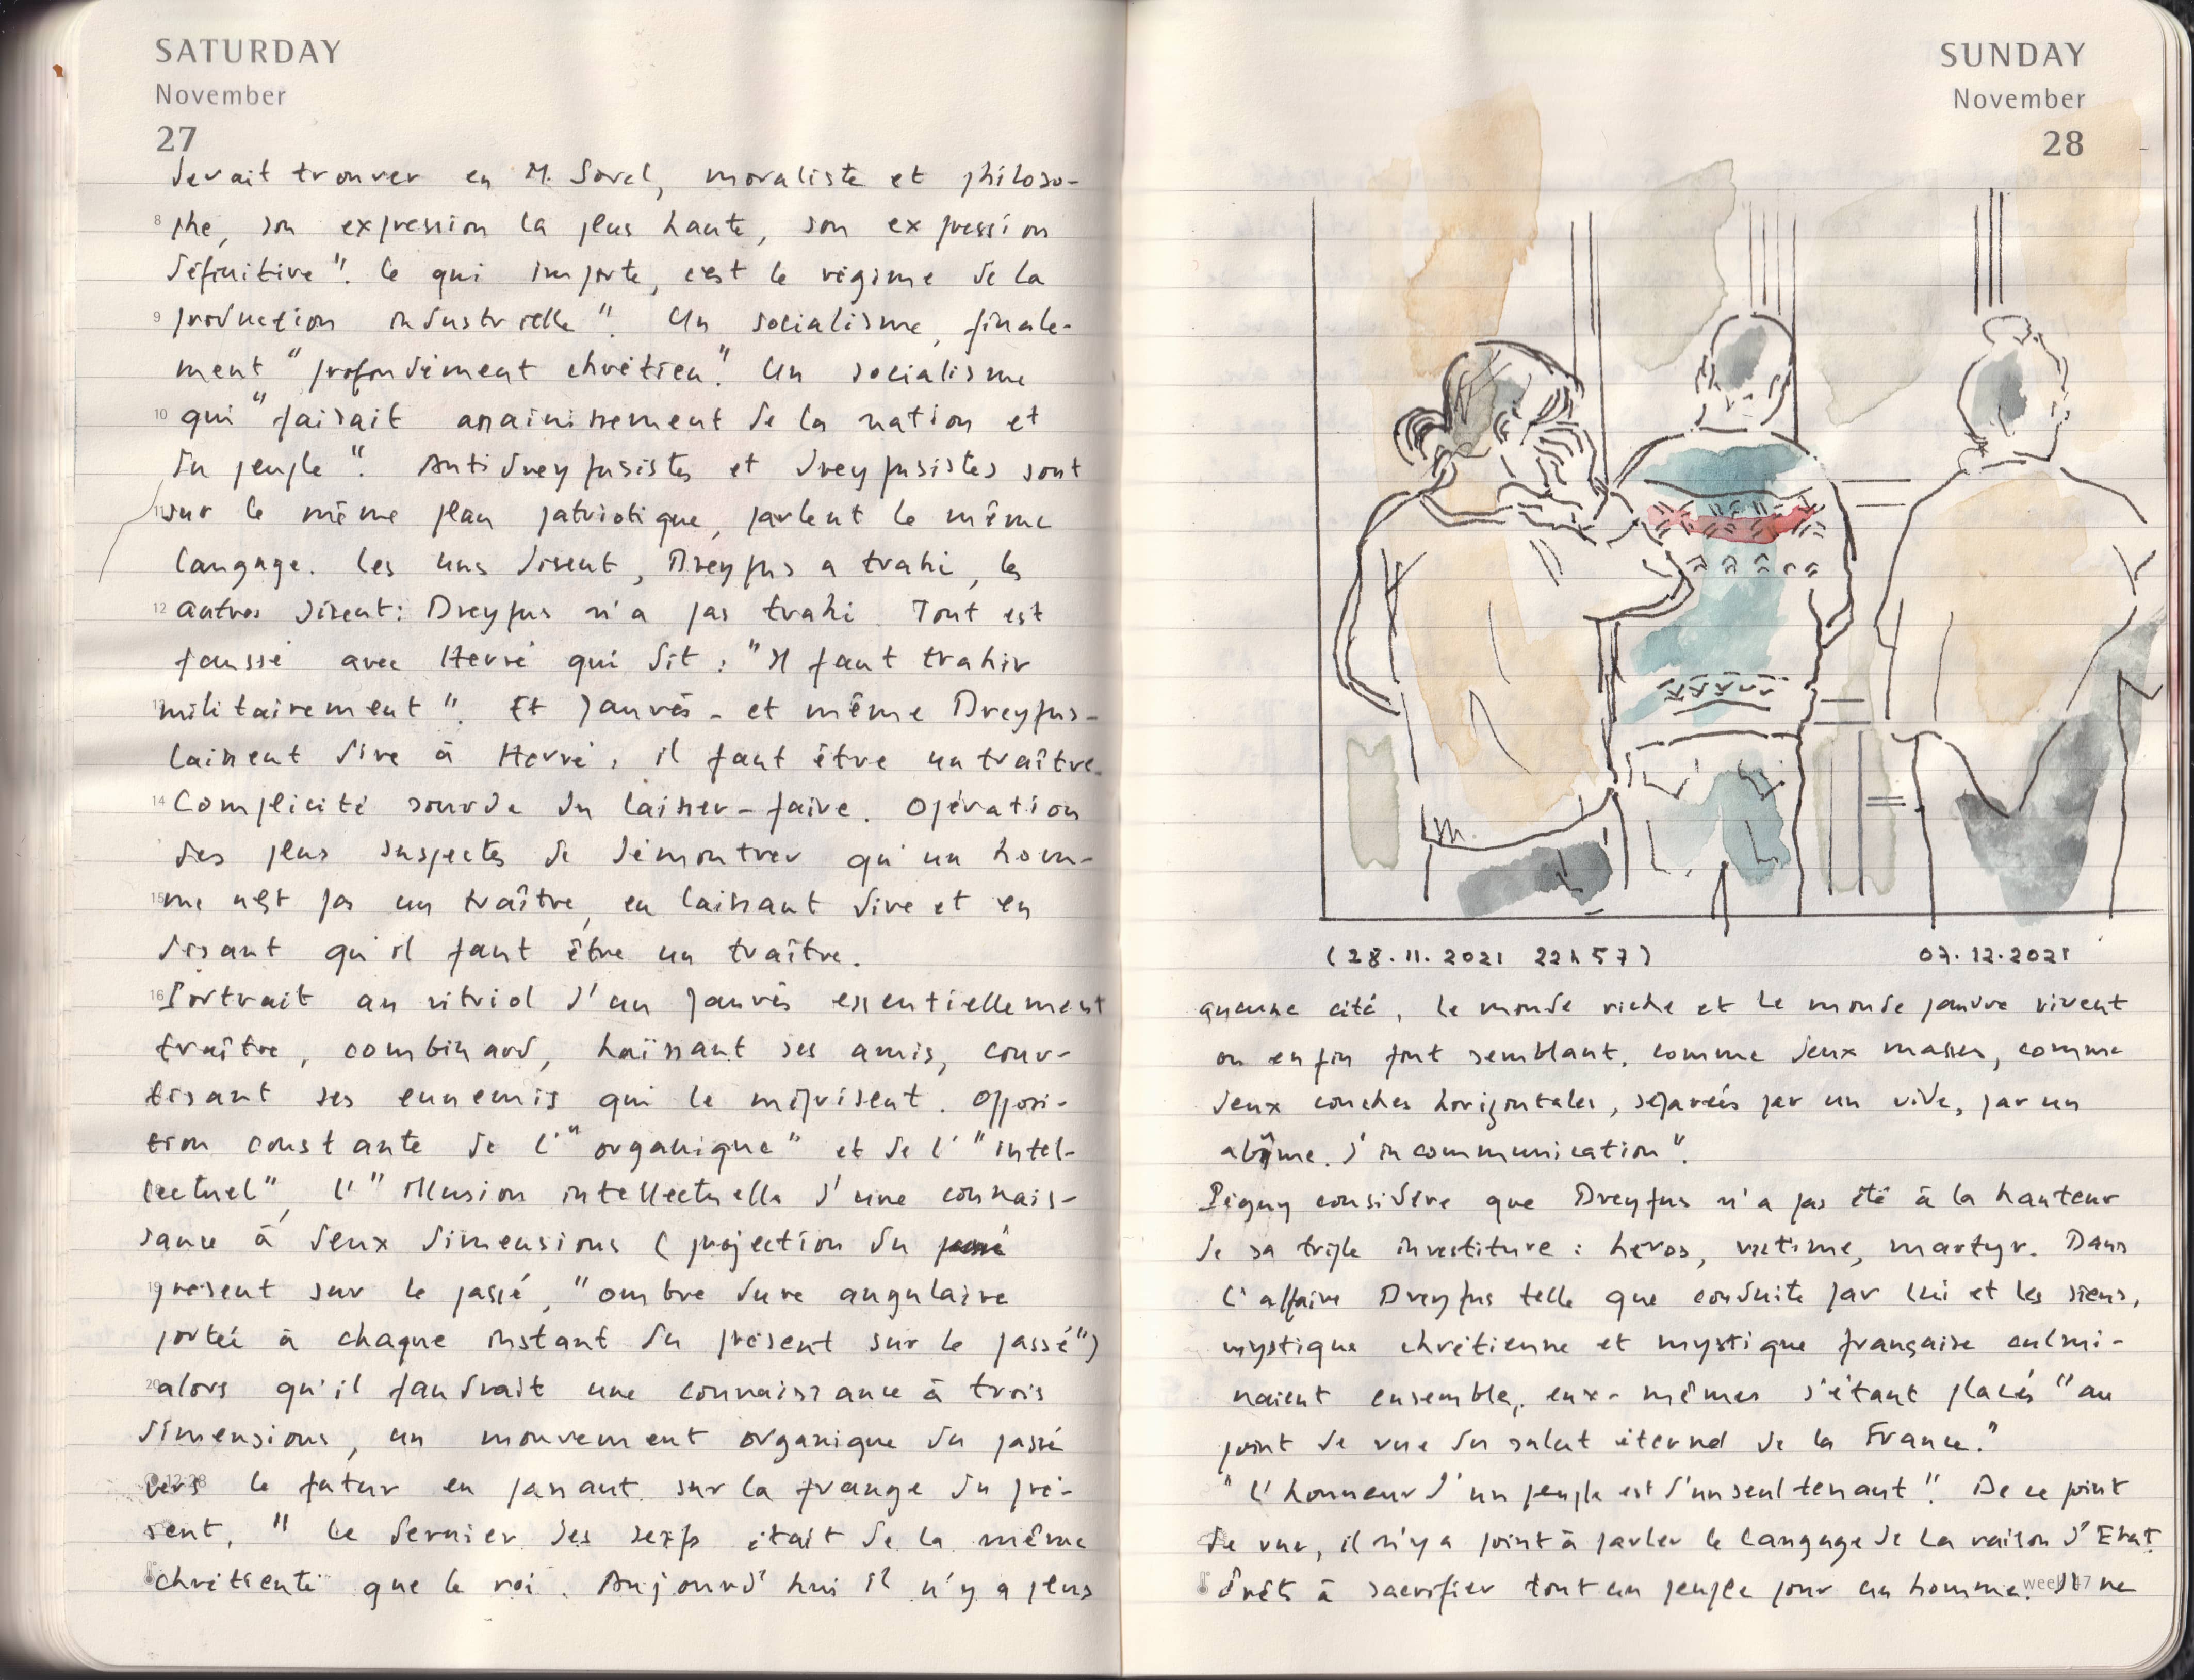 SATURDAY
November
27
devait trouver en M. Sorel, moraliste et philoso-
8 phe, son expression la plus haute, son expression
définitive". Ce qui importe, c'est le régime de la
9 production industrielle". Un socialisme, finale-
ment "profondément chrétien". Un socialisme
10 qui "faisait assainissement de la nation et
du peuple". Antidreyfusistes et dreyfusistes sont
11 sur le même plan patriotique, parlent le même
langage. Les uns disent, Dreyfus a trahi, les
12 autres disent: Dreyfus n'a pas trahi. Tout est
faussé avec Hervé qui dit : "Il faut trahir
militairement". Et Jaurès - et même Dreyfus -
laissent dire à Hervé, il faut être un traître.
14 Complicité sourde du laisser-faire. Opération
des plus suspectes de démontrer qu'un hom-
15 me n'est pas un traître, en laissant dire et en
disant qu'il faut être un traître.
16 Portrait au vitriol d'un Jaurès essentiellement
traître, combinard, haïssant ses amis, cour-
tisant ses ennemis qui le méprisent. Opposi-
tion constante de l'"organique" et de l'"intel-
lectuel", l'"illusion intellectuelle d'une connais-
sance à deux dimensions (projection du
19 présent sur le passé, "ombre dure angulaire
portée à chaque instant du présent sur le passé")
20 alors qu'il faudrait une connaissance à trois
dimensions, un mouvement organique du passé
vers le futur en passant sur la frange du pré-
sent. "Le dernier des serfs était de la même
chrétienté que le roi. Aujourd'hui il n'y a plus
SUNDAY
November
28
(28.11.2021 22h57) 07.12.2021
aucune cité, le monde riche et le monde pauvre vivent
ou enfin font semblant, comme deux masses, comme
deux couches horizontales, séparées par un vide, par un
abîme d'incommunication".
Péguy considère que Dreyfus n'a pas été à la hauteur
de sa triple investiture : héros, victime, martyr. Dans
l'affaire Dreyfus telle que conduite par lui et les siens,
mystique chrétienne et mystique française culmi-
naient ensemble, eux-mêmes s'étant placés "au
point de vue du salut éternel de la France."
"L'honneur d'un peuple est d'un seul tenant". De ce point
de vue, il n'y a point à parler le langage de la raison d'Etat
prêts à sacrifier tout un peuple pour un homme. Il ne
week 47